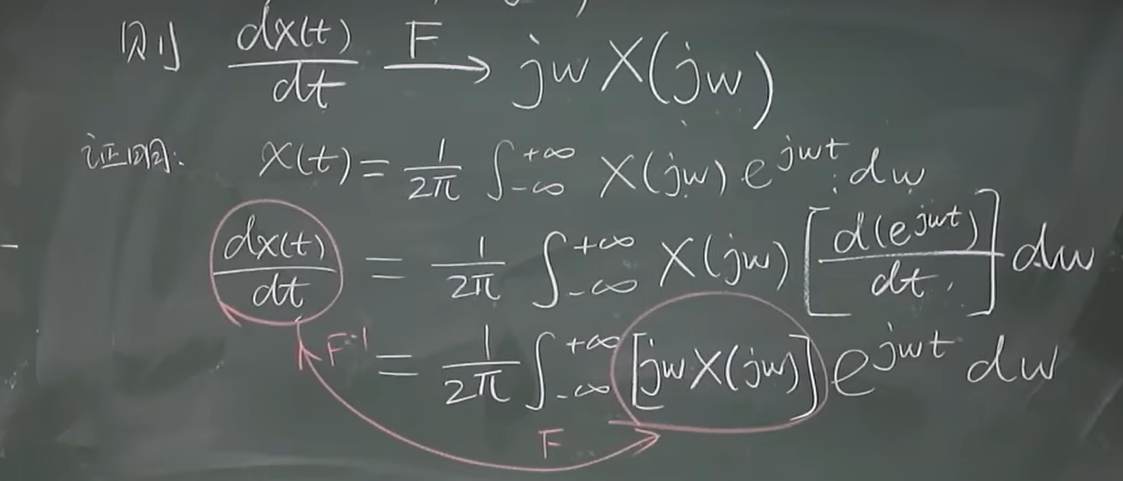 则 dx(t)/dt F→ jw X(jw)
证明: x(t) = 1/2π ∫_{-∞}^{+∞} X(jw) e^{jwt} dw
dx(t)/dt = 1/2π ∫_{-∞}^{+∞} X(jw) [d(e^{jwt})/dt] dw
F^{-1} = 1/2π ∫_{-∞}^{+∞} [jw X(jw)] e^{jwt} dw
F